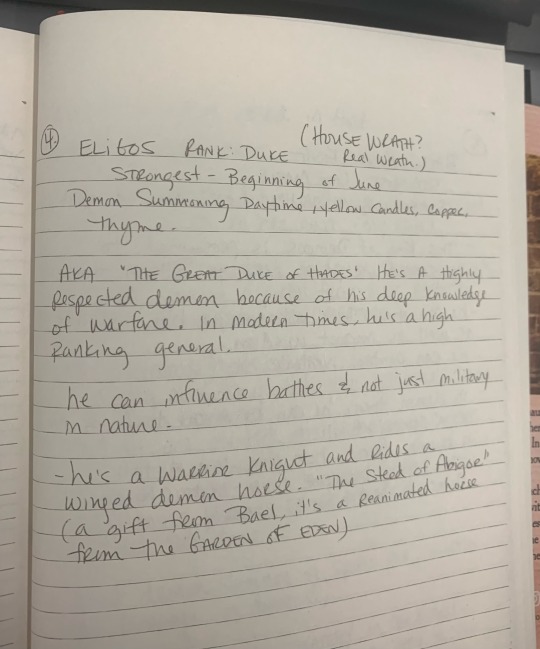 4. ELIGOS RANK: DUKE (HOUSE WRATH?
Real Wrath.)
Strongest - Beginning of June
Demon Summoning Daytime, yellow candles, copper,
thyme.
AKA "THE GREAT DUKE OF HADES" He's A Highly
Respected demon because of his deep knowledge
of warfare. In modern times, he's a high
Ranking general.
he can influence battles & not just military
in nature.
- he's a Warrior Knight and Rides a
winged demon horse. "The Stead of Abigor"
(a gift from Bael, it's a Reanimated horse
from the GARDEN OF EDEN)